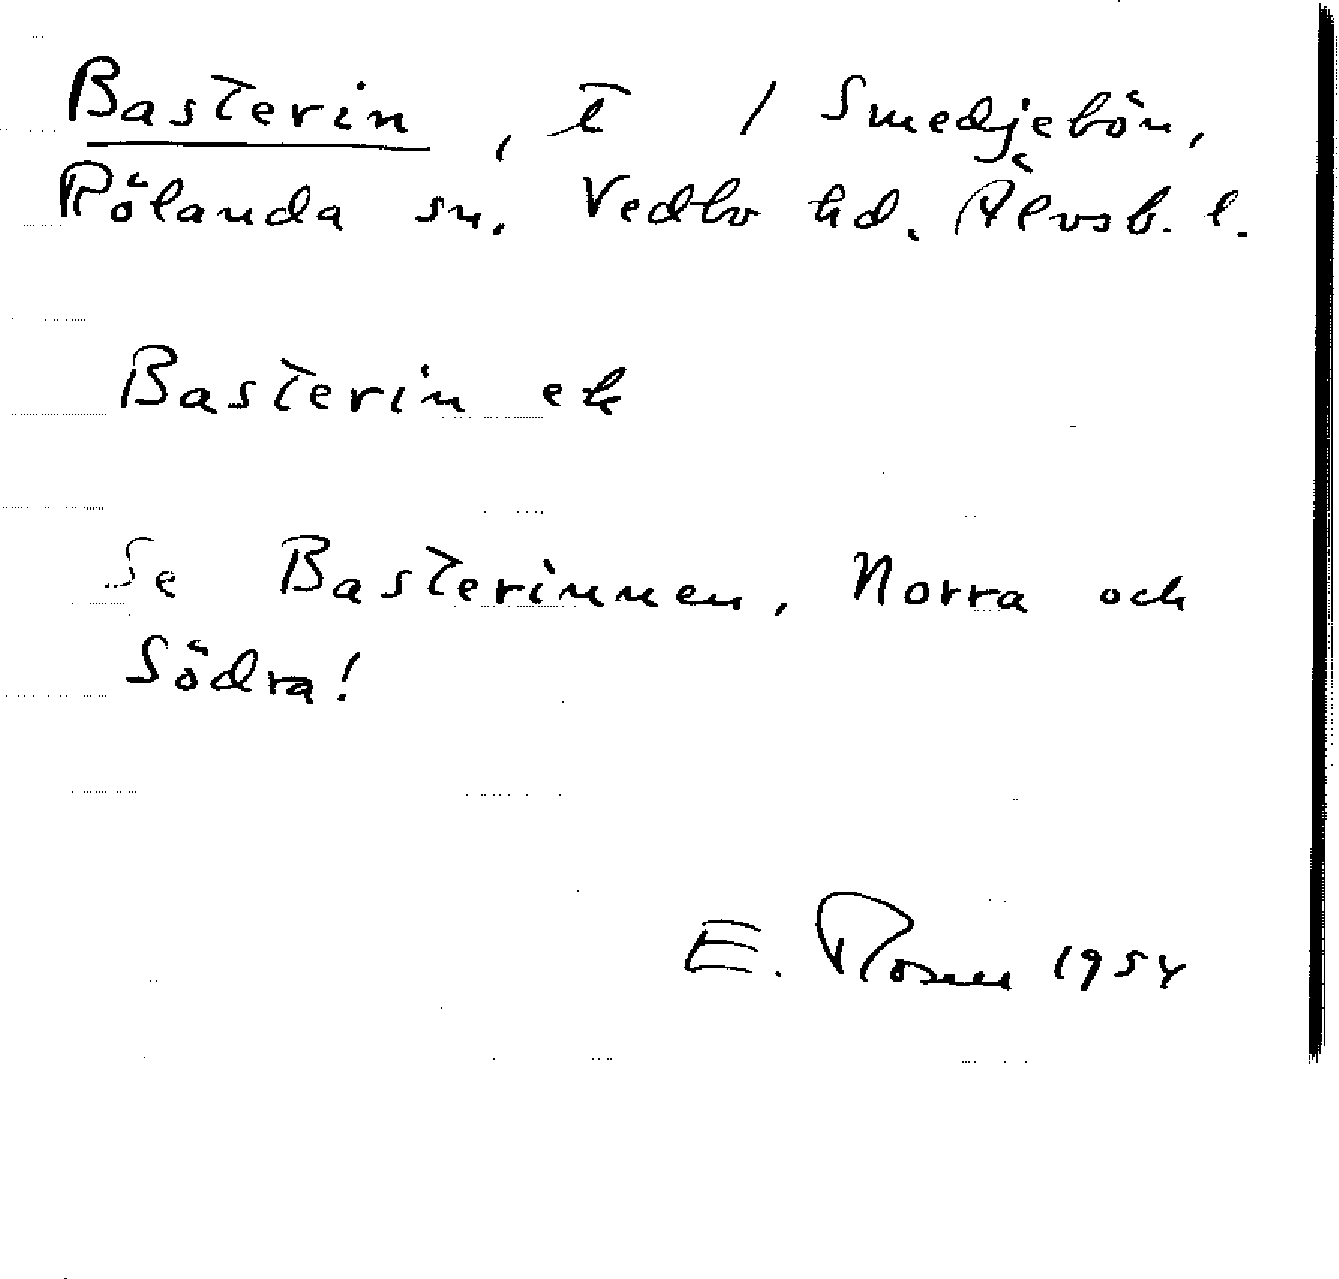 Basterin, t / Smedjebön,
Rölanda sn. Vedbo hd. Älvsb. l.
Basterin ek
Se Basterinnen, Norra och
Södra!
E. Rosell 1954